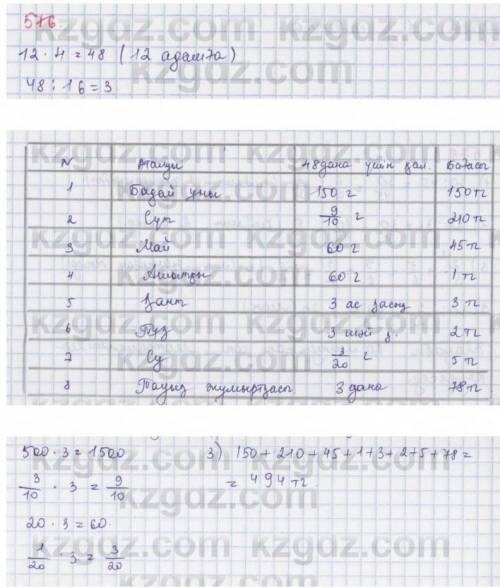 576.
12 · 4 = 48 ( 12 адамға )
48 : 16 = 3
N Аталуы 48 дана үшін қаж. Бағасы
1 Бидай ұны 150 г 150 тг
2 Сүт 9/10 г 210 тг
3 Май 60 г 45 тг
4 Ашытқы 60 г 1 тг
5 Қант 3 ас қасық 3 тг
6 Тұз 3 шай қ. 2 тг
7 Су 3/20 г 5 тг
8 Тауық жұмыртқасы 3 дана 78 тг
500 · 3 = 1500 3) 150 + 210 + 45 + 1 + 3 + 2 + 5 + 78 =
3/10 · 3 = 9/10 = 494 тг.
20 · 3 = 60.
1/20 · 3 = 3/20
kzgdz.com